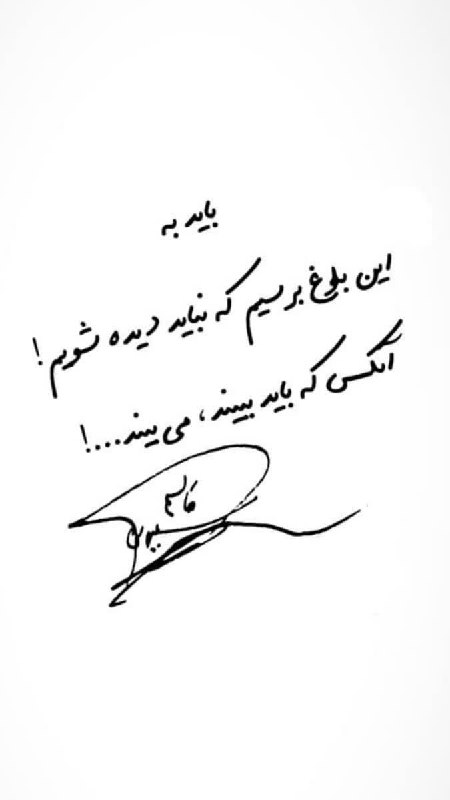 باید به
این بلوغ برسیم که نباید دیده شویم!
آنکس که باید ببیند، می‌بیند...!
قاسم
سلیمانی